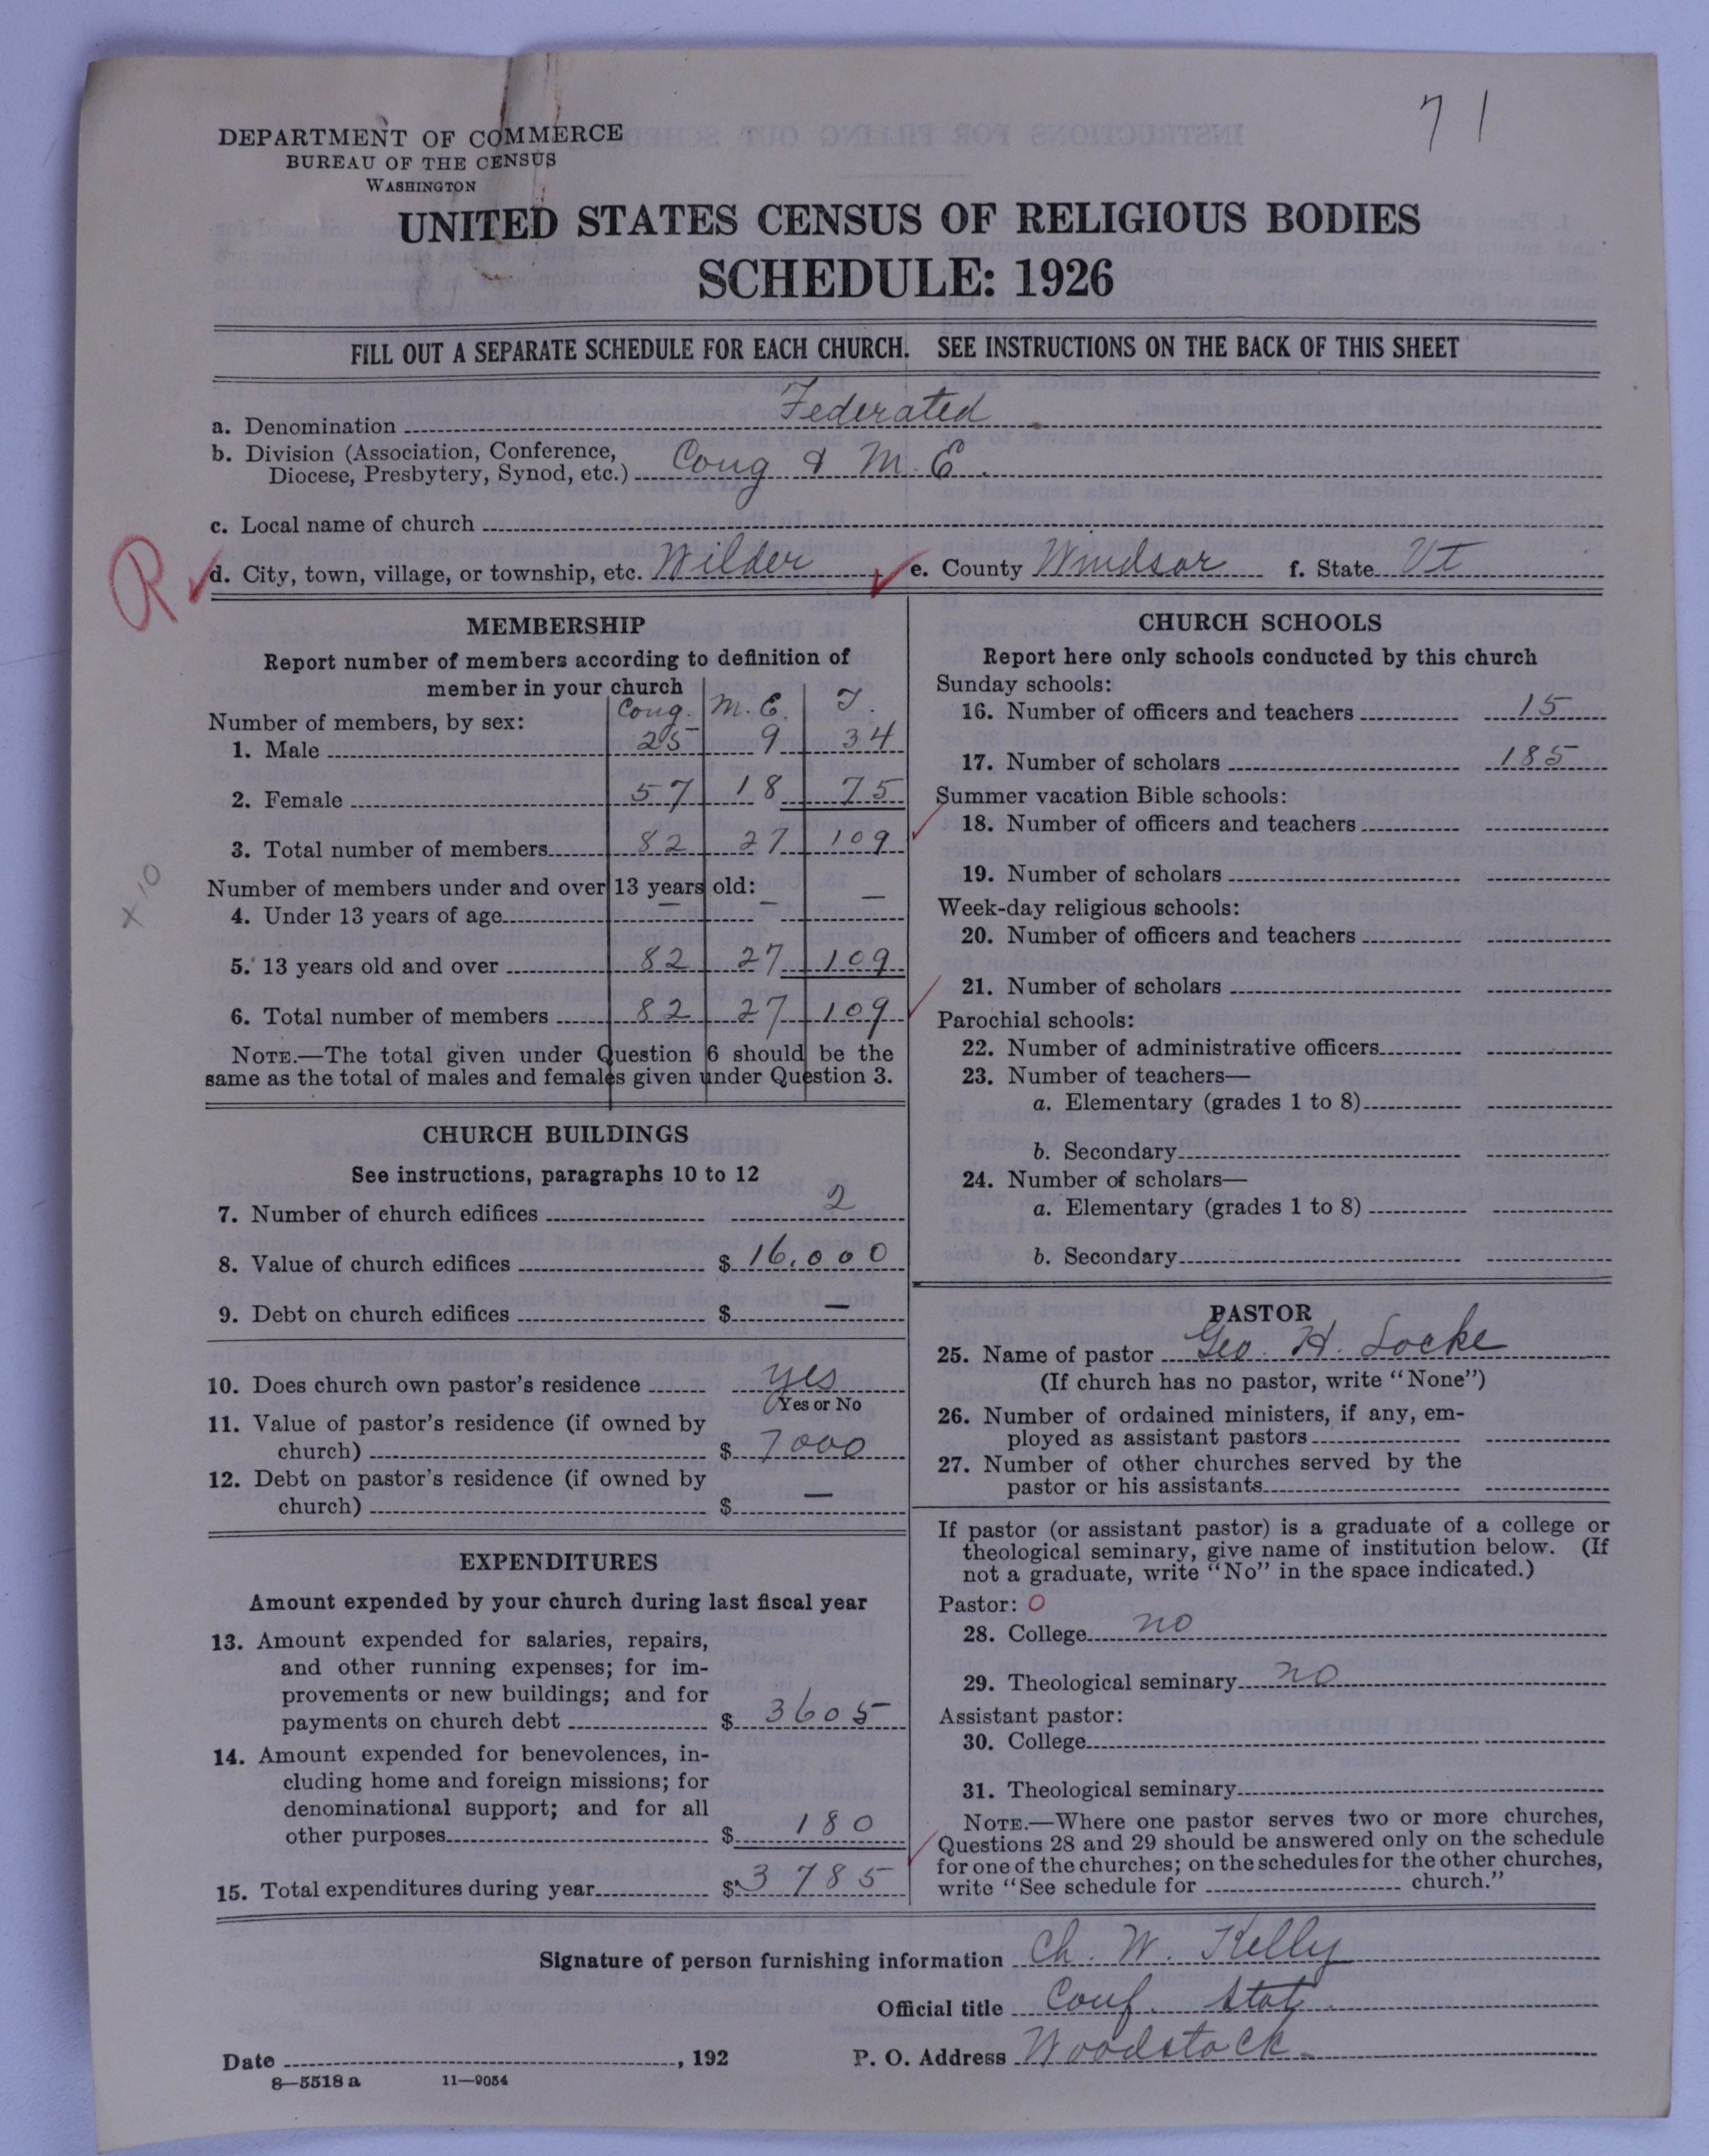 71
DEPARTMENT OF COMMERCE
BUREAU OF THE CENSUS
WASHINGTON
UNITED STATES CENSUS OF RELIGIOUS BODIES
SCHEDULE: 1926
FILL OUT A SEPARATE SCHEDULE FOR EACH CHURCH. SEE INSTRUCTIONS ON THE BACK OF THIS SHEET
a. Denomination Federated
b. Division (Association, Conference,
Diocese, Presbytery, Synod, etc.) Cong & M. E.
c. Local name of church
R d. City, town, village, or township, etc. Wilder e. County Windsor f. State Vt
MEMBERSHIP
Report number of members according to definition of
member in your church
Cong. M. E. T.
Number of members, by sex:
1. Male 25 9 34
2. Female 57 18 75
3. Total number of members 82 27 109
x 10
Number of members under and over 13 years old:
4. Under 13 years of age — — —
5. 13 years old and over 82 27 109
6. Total number of members 82 27 109
NOTE.—The total given under Question 6 should be the
same as the total of males and females given under Question 3.
CHURCH BUILDINGS
See instructions, paragraphs 10 to 12
7. Number of church edifices 2
8. Value of church edifices $ 16,000
9. Debt on church edifices $ —
10. Does church own pastor's residence yes
Yes or No
11. Value of pastor's residence (if owned by
church) $ 7000
12. Debt on pastor's residence (if owned by
church) $ —
EXPENDITURES
Amount expended by your church during last fiscal year
13. Amount expended for salaries, repairs,
and other running expenses; for im-
provements or new buildings; and for
payments on church debt $ 3605
14. Amount expended for benevolences, in-
cluding home and foreign missions; for
denominational support; and for all
other purposes $ 180
15. Total expenditures during year $ 3785
CHURCH SCHOOLS
Report here only schools conducted by this church
Sunday schools:
16. Number of officers and teachers 15
17. Number of scholars 185
Summer vacation Bible schools:
18. Number of officers and teachers
19. Number of scholars
Week-day religious schools:
20. Number of officers and teachers
21. Number of scholars
Parochial schools:
22. Number of administrative officers
23. Number of teachers—
a. Elementary (grades 1 to 8)
b. Secondary
24. Number of scholars—
a. Elementary (grades 1 to 8)
b. Secondary
PASTOR
25. Name of pastor Geo. H. Locke
(If church has no pastor, write "None")
26. Number of ordained ministers, if any, em-
ployed as assistant pastors
27. Number of other churches served by the
pastor or his assistants
If pastor (or assistant pastor) is a graduate of a college or
theological seminary, give name of institution below. (If
not a graduate, write "No" in the space indicated.)
Pastor: O
28. College no
29. Theological seminary no
Assistant pastor:
30. College
31. Theological seminary
NOTE.—Where one pastor serves two or more churches,
Questions 28 and 29 should be answered only on the schedule
for one of the churches; on the schedules for the other churches,
write "See schedule for church."
Signature of person furnishing information Ch. W. Kelly
Official title Conf. Stat.
Date , 192 P. O. Address Woodstock
8—5518 a 11—9054